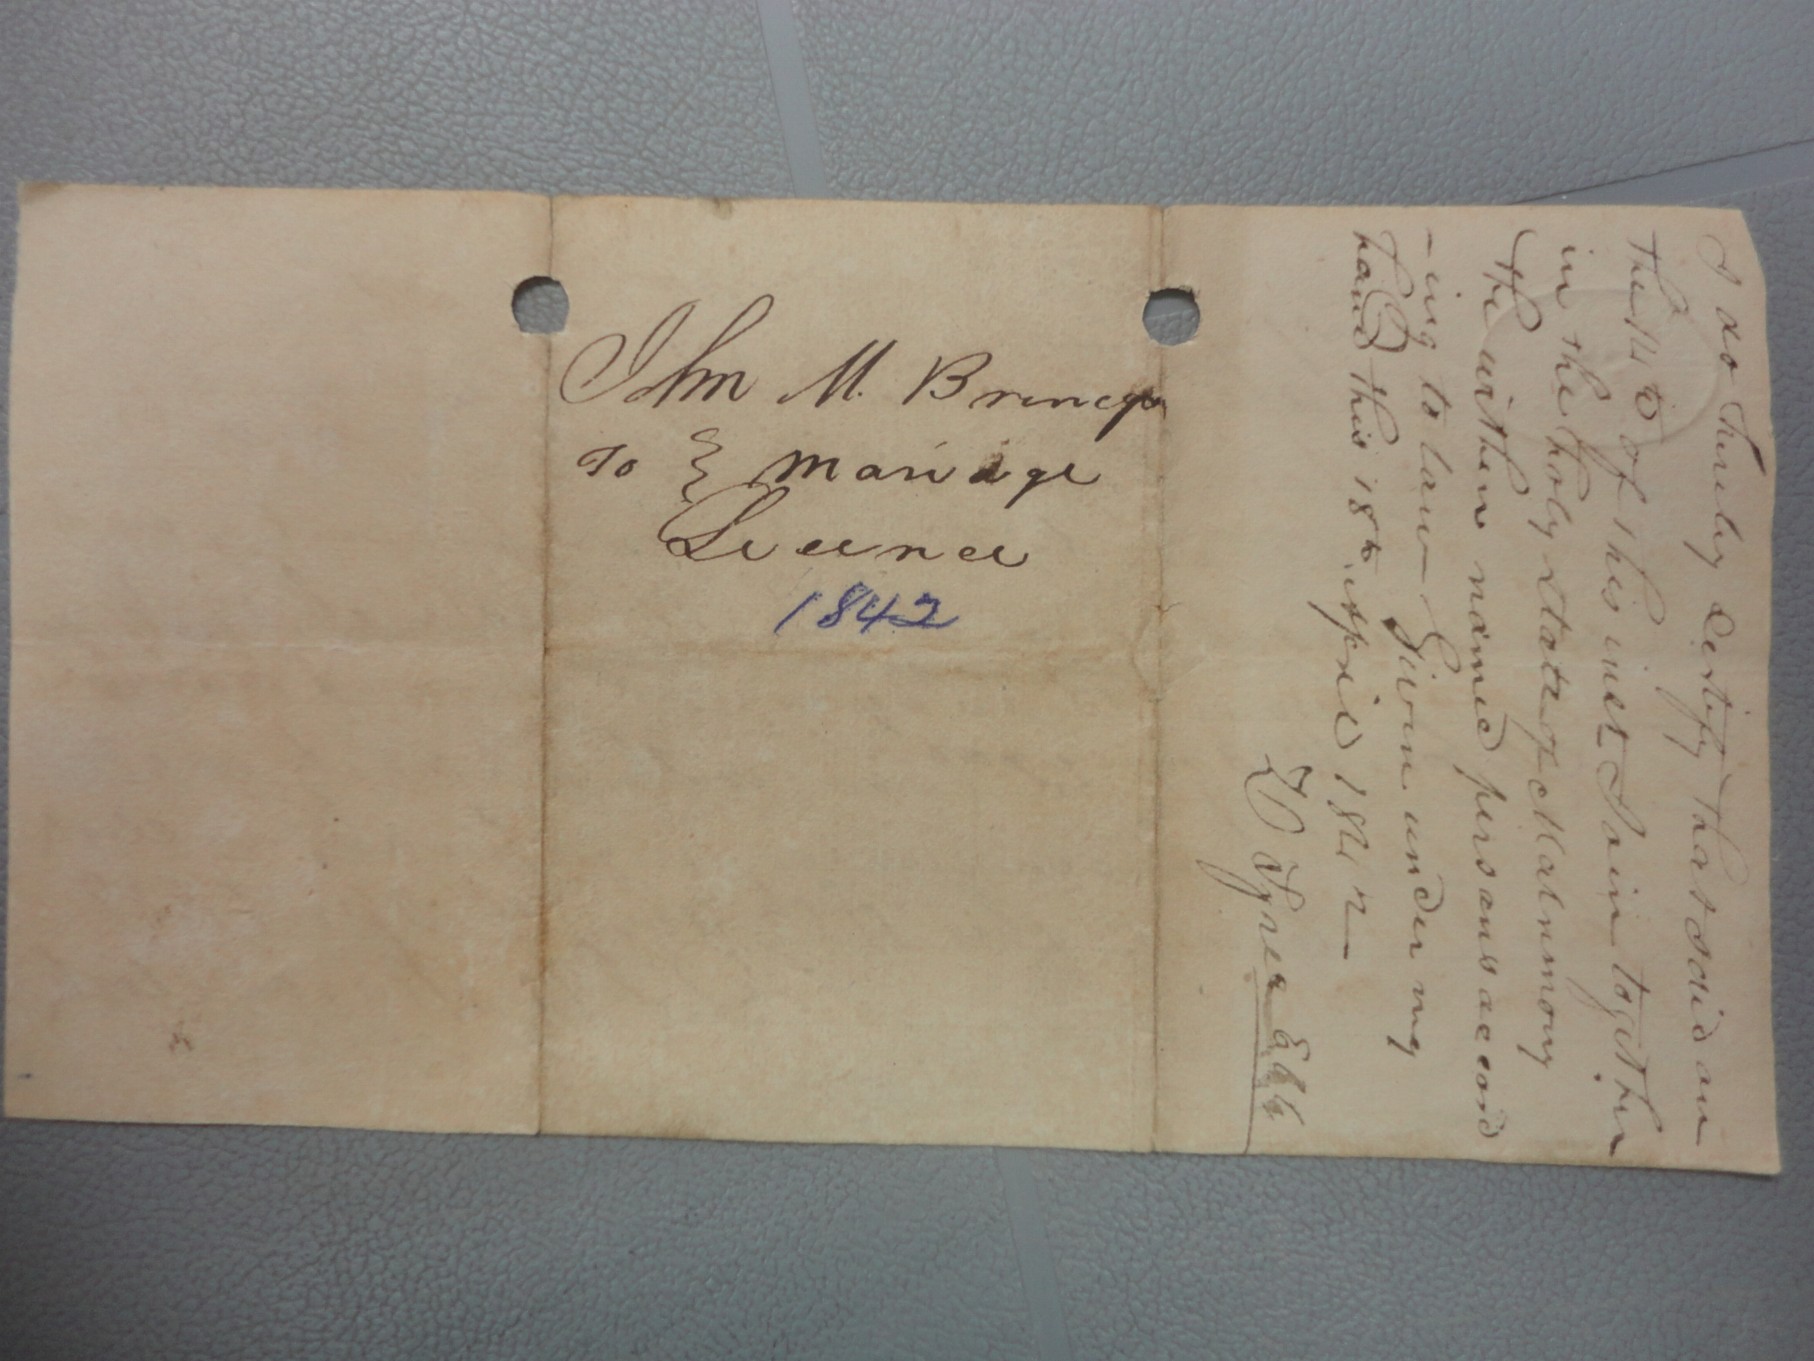 John M. Brincg
To } Mariage
Licence
1842
I do hereby Certify that I did on
the 14 of this inst Join together
in the holy State of Matrimony
the within named persons accord
-ing to law Given under my
hand this 18th April 1842